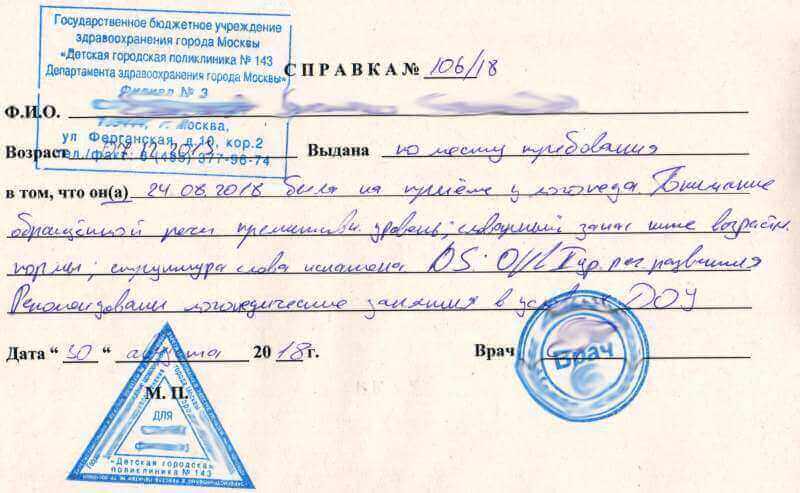 Государственное бюджетное учреждение
здравоохранения города Москвы
«Детская городская поликлиника № 143
Департамента здравоохранения города Москвы»
Филиал № 3
г. Москва,
ул Ферганская д.10, кор.2
тел./факс: 8 (495) 377-96-74
СПРАВКА № 106/18
Ф.И.О.
Возраст Выдана по месту требования
в том, что он(а) 24.08.2018 была на приёме у логопеда. Понимание
обращённой речи уровень; словарный запас ниже возрастн.
нормы; структура слова искажена. DS: ОНР I ур. реч. развития
Рекомендованы логопедические занятия в ДОУ
Дата “ 30 “ августа 2018г. Врач
Врач
М. П.
ДЛЯ
"Детская городская
поликлиника № 143